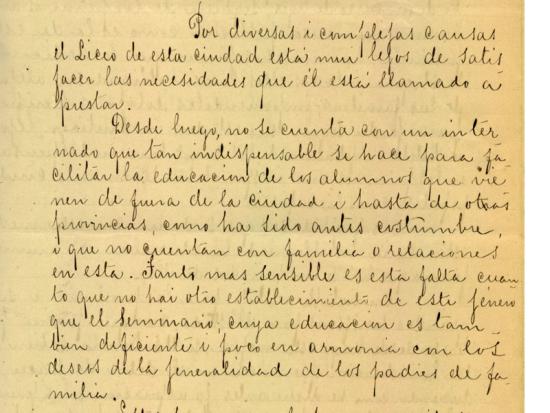 Por diversas i complejas causas
el Liceo de esta ciudad está mui lejos de satis
facer las necesidades que él está llamado a
prestar.
Desde luego, no se cuenta con un inter
nado que tan indispensable se hace para fa-
cilitar la educacion de los alumnos que vie
nen de fuera de la ciudad i hasta de otras
provincias, como ha sido antes costumbre,
i que no cuentan con familia o relaciones
en esta. Tanto mas sensible es esta falta cuan
to que no hai otro establecimiento de este jénero
que el Seminario, cuya educacion es tam-
bien deficiente i poco en armonia con los
deseos de la jeneralidad de los padres de fa-
milia.